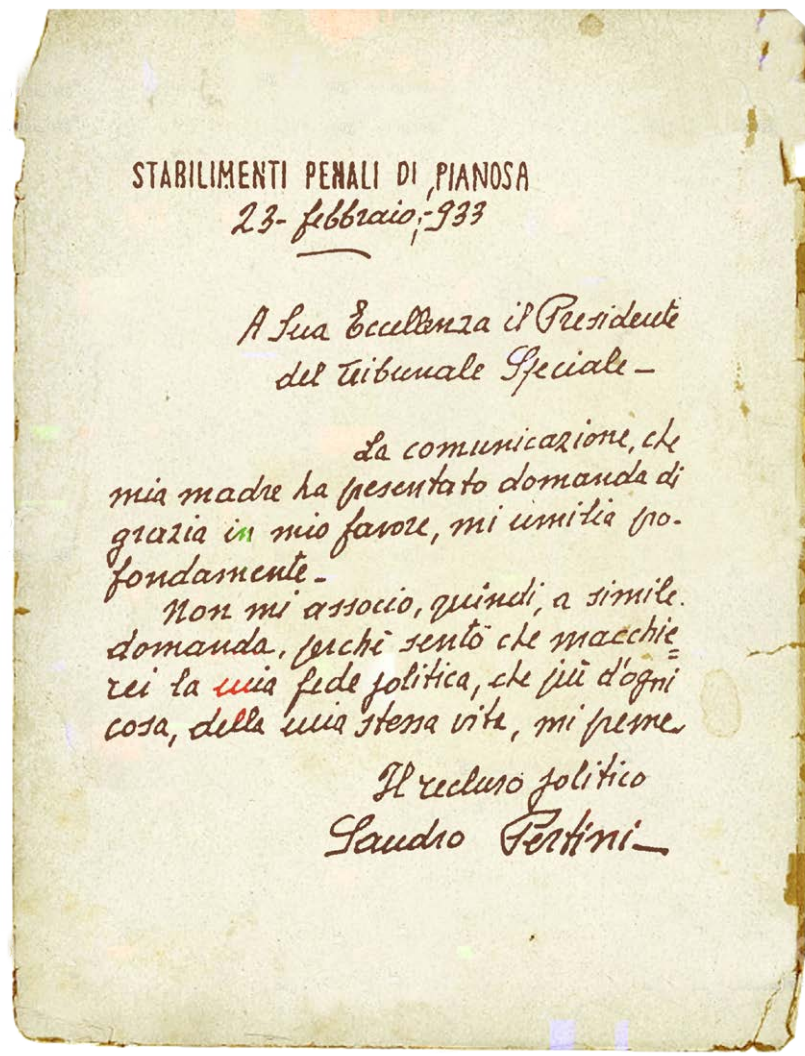 STABILIMENTI PENALI DI PIANOSA
23- febbraio,-933
A Sua Eccellenza il Presidente
del Tribunale Speciale-
La comunicazione, che
mia madre ha presentato domanda di
grazia in mio favore, mi umilia pro-
fondamente-
Non mi associo, quindi, a simile
domanda, perchè sento che macchie=
rei la mia fede politica, che più d'ogni
cosa, della mia stessa vita, mi preme.
Il recluso politico
Sandro Pertini-